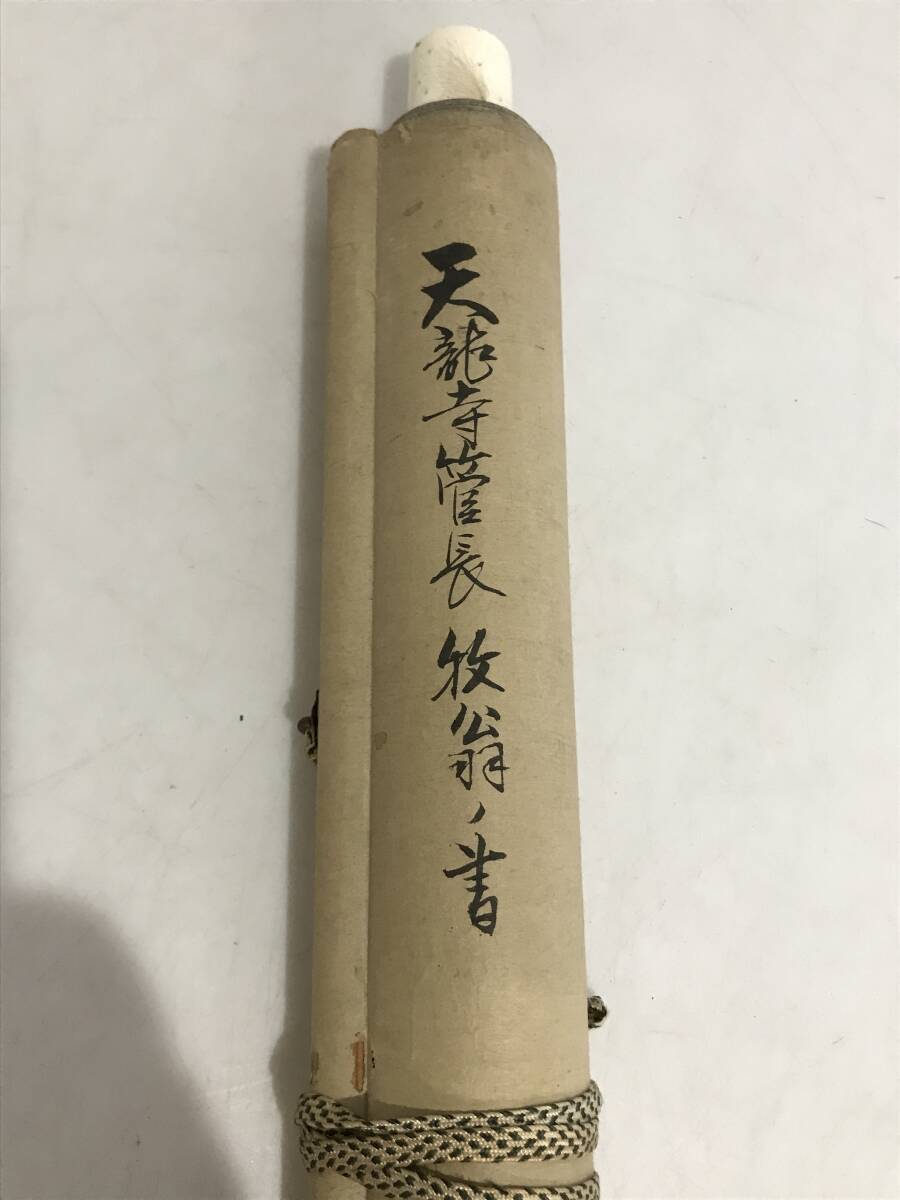 天龍寺管長 牧翁ノ書